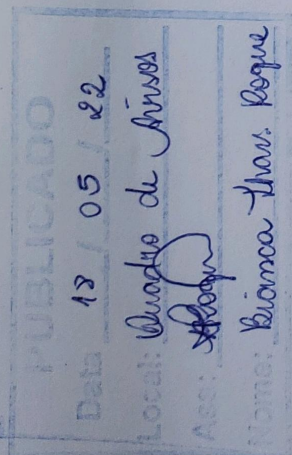 PUBLICADO
Data 18 / 05 / 22
Local: Quadro de Avisos
Ass:
Nome: Bianca Roque